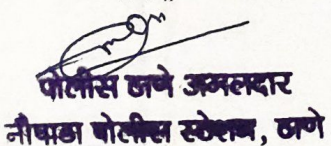 पोलीस ठाणे अमलदार
नौपाडा पोलीस स्टेशन, ठाणे